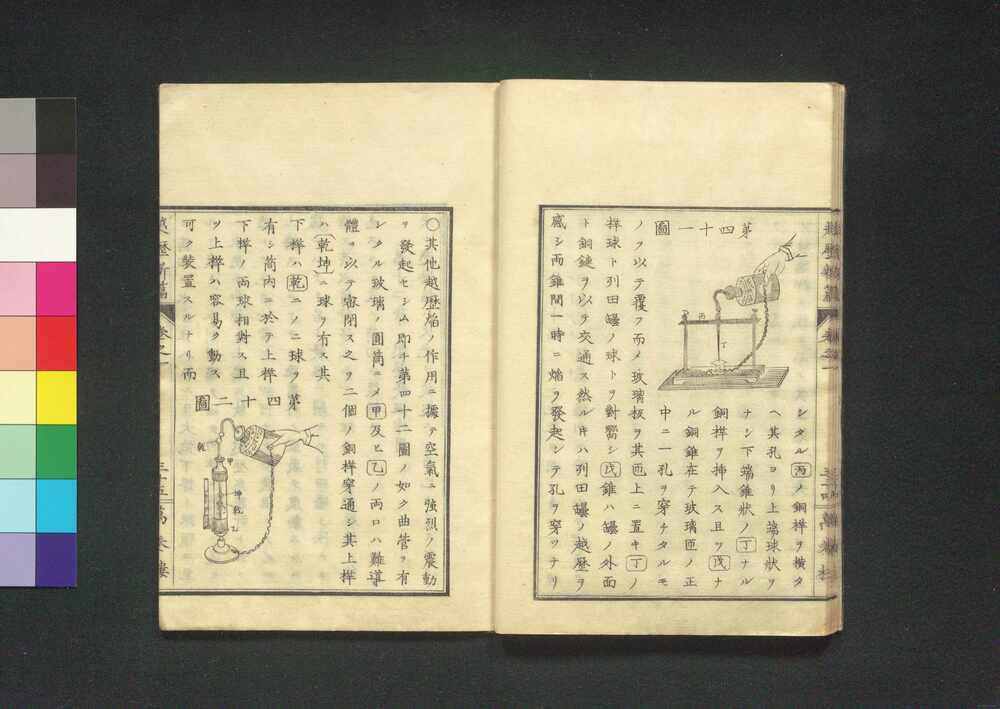 第四十一圖
シタル丙ノ銅桿ヲ横タ
ヘ其孔ヨリ上端球狀ヲ
ナシ下端錐狀ノ丁ナル
銅桿ヲ挿入ス且ツ戊ナ
ル銅錐在テ玻璃匝ノ正
中ニ一孔ヲ穿チタルモ
ノヲ以テ覆フ而メ玻璃板ヲ其匝上ニ置キ丁ノ
桿球ト列田罎ノ球トヲ對嚮シ戊錐ハ罎ノ外面
ト銅鏈ヲ以テ交通ス然ルキハ列田罎ノ越歴ヲ
感シ両錐間一時ニ焔ヲ發起シテ孔ヲ穿ツナリ
丙
丁
〇其他越歴焔ノ作用ニ據テ空氣ニ強烈ノ震動
ヲ發起セシム即チ第四十二圖ノ如ク曲管ヲ有
シタル玻璃ノ圓筒ニメ甲及ヒ乙ノ両口ハ難導
體ヲ以テ密閉ス之ヲ二個ノ銅桿穿通シ其上桿
ハ乾坤ニ球ヲ有ス其
下桿ハ乾ニノニ球ヲ
有シ筒内ニ於テ上桿
下桿ノ両球相對ス且
ツ上桿ハ容易ク動ス
可ク装置スルナリ而
第四十二圖
乾
甲
坤
乾
乙
越歴新篇
卷之一
三十五